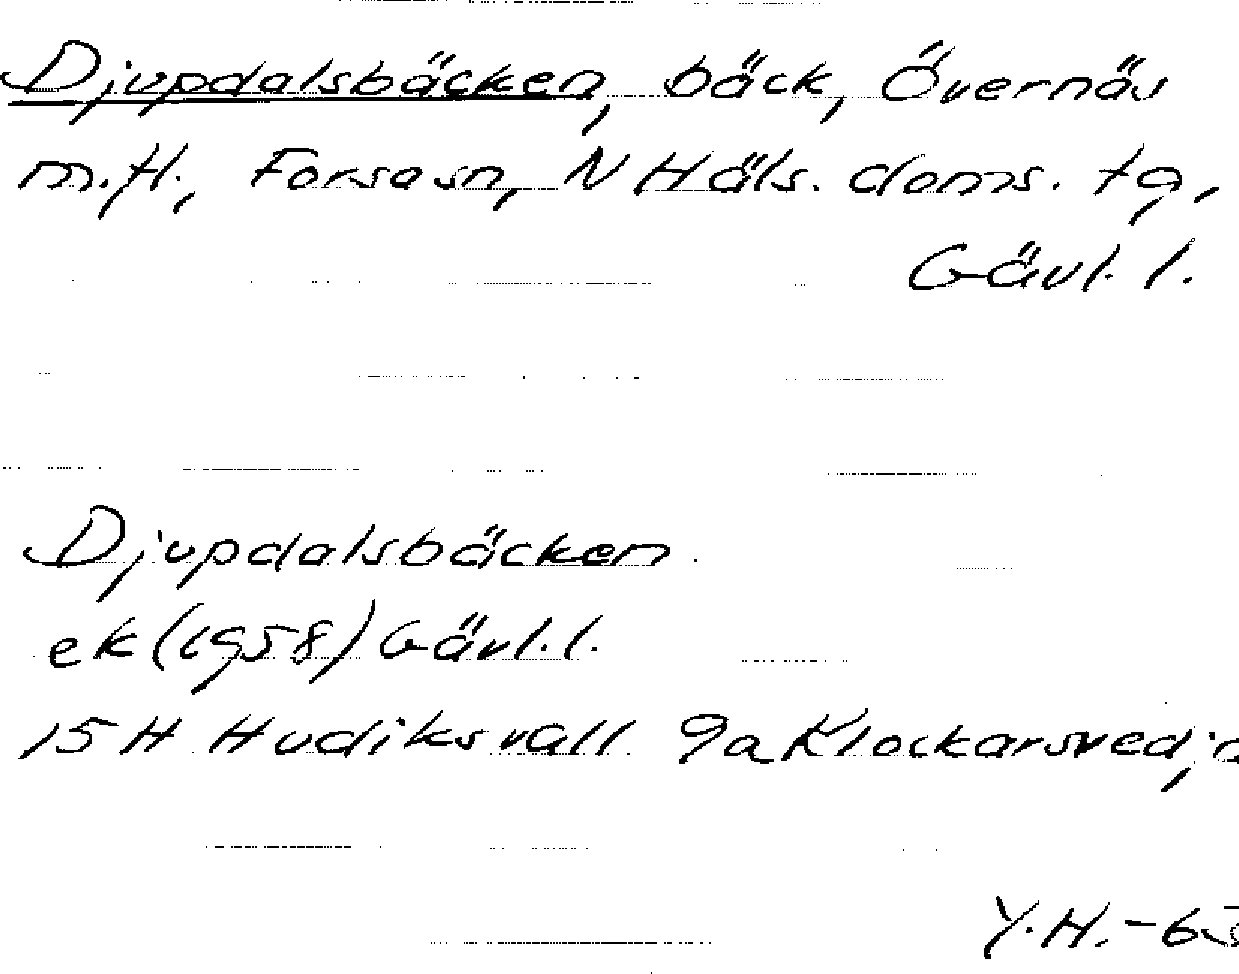 Djupdalsbäcken, bäck, Övernäs
m.fl., Forsa sn, N Häls. doms. tg,
Gävl. l.
Djupdalsbäcken
ek (1958) Gävl. l.
15 H Hudiksvall 9a Klockarsvedja
Y.H. -63